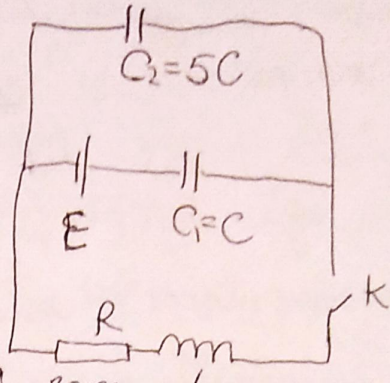 C₂=5C
E C₁=C
K
R